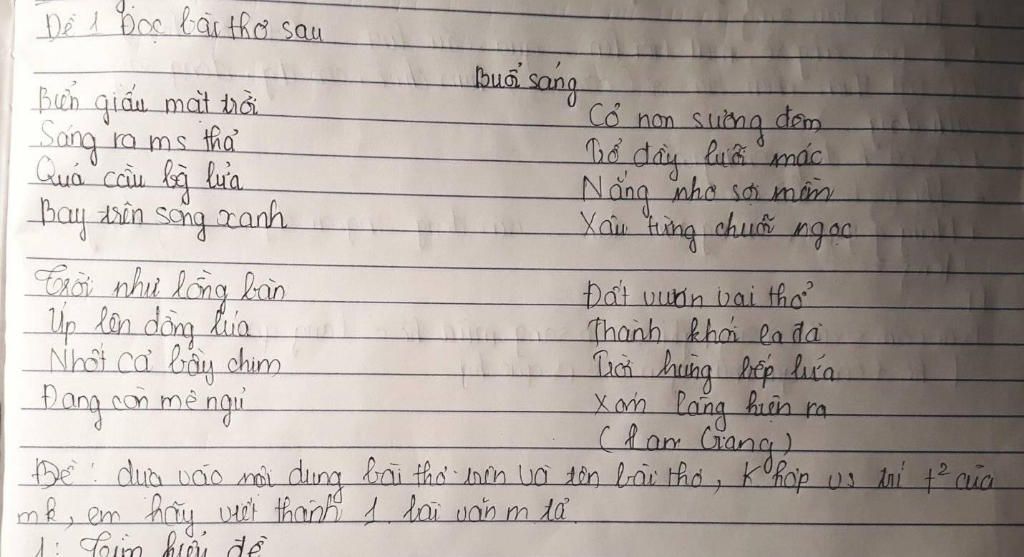 Đề 1 Đọc bài thơ sau
Buổi sáng
Biển giấu mặt trời
Sáng ra ms thả
Quả cầu bằng lửa
Bay trên sóng xanh
Trời như lồng bàn
Úp lên đồng lúa
Nhốt cả bầy chim
Đang còn mê ngủ
Cỏ non sương đêm
Trổ đầy lưỡi mác
Nắng nhơ sợi mềm
Xâu từng chuỗi ngọc
Đất vươn vai thở
Thành khói la đà
Trời hừng bếp lửa
Xóm làng hiện ra
(Lam Giang)
Đề: dựa vào nội dung bài thơ trên và tên bài thơ, K hợp vs trí t² của
mk, em hãy viết thành 1 bài văn m tả
1: Tìm hiểu đề